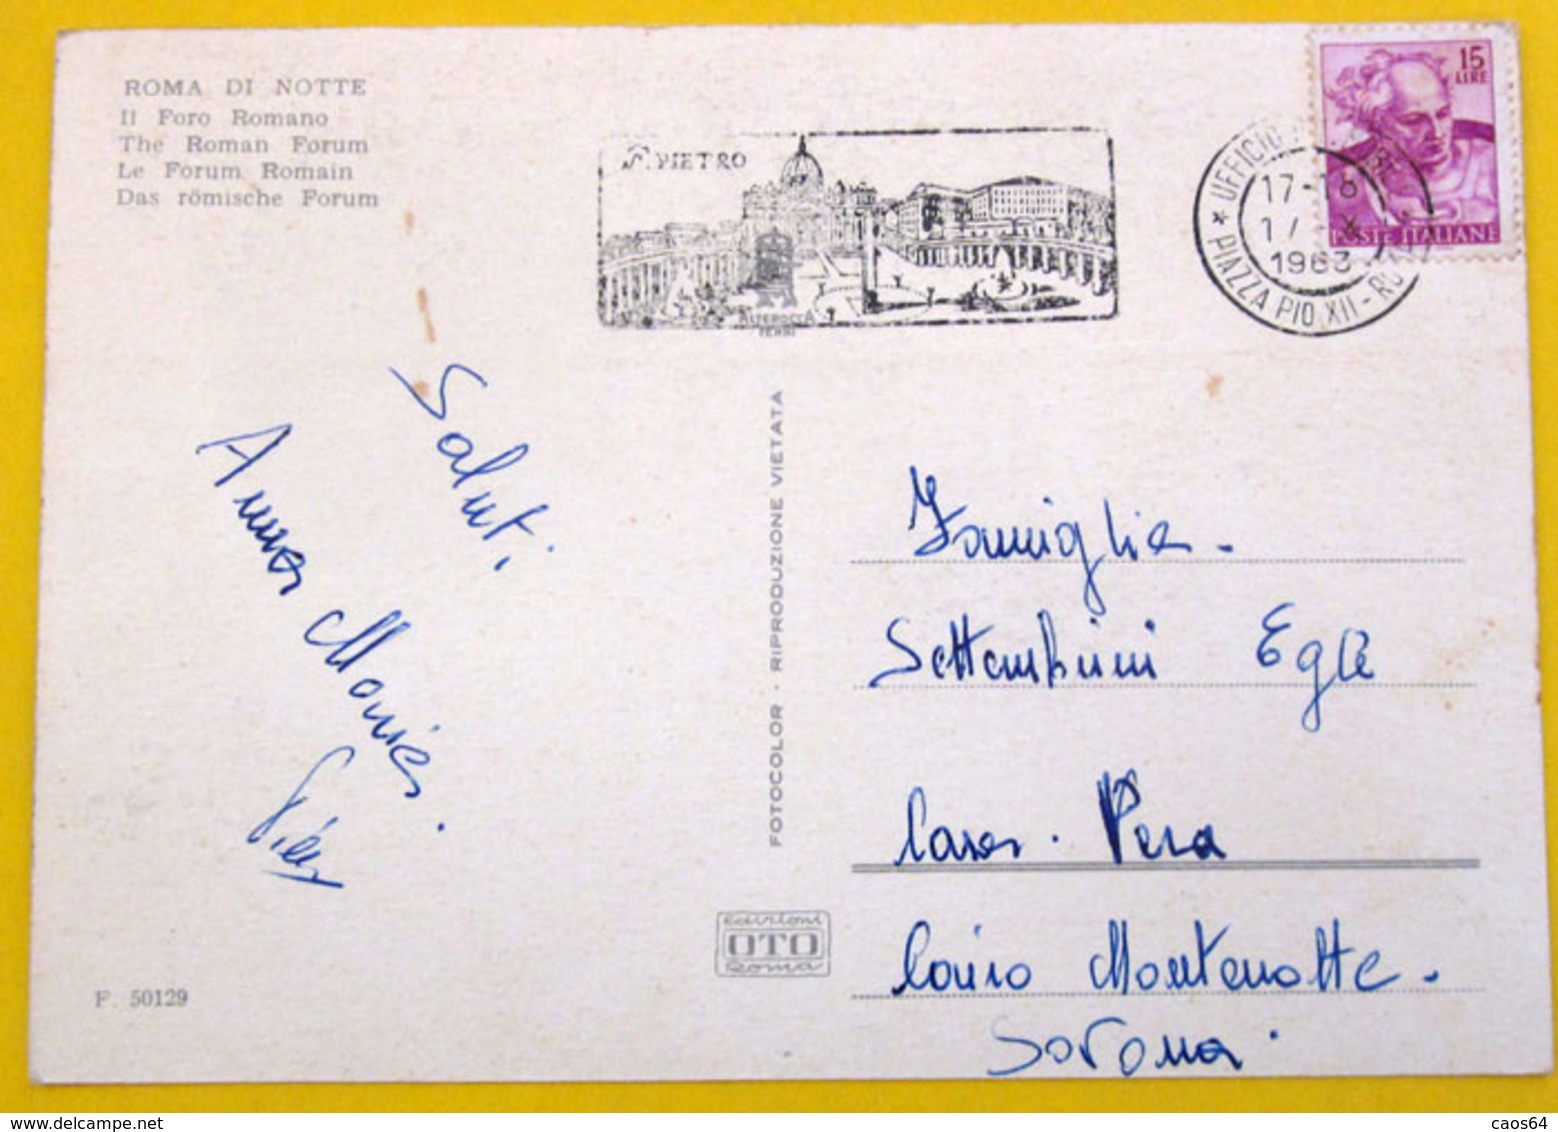 ROMA DI NOTTE
Il Foro Romano
The Roman Forum
Le Forum Romain
Das römische Forum
S. PIETRO
ALTEROCCA
TERNI
15
LIRE
POSTE ITALIANE
UFFICIO
17-18
17 X
1963
PIAZZA PIO XII - ROMA
Saluti
Anna Maria
FOTOCOLOR - RIPRODUZIONE VIETATA
Famiglia -
Settembrini Egle
Casa. Pera
Cairo Montenotte.
Savona.
Edizioni
OTO
Roma
F. 50129
caos64